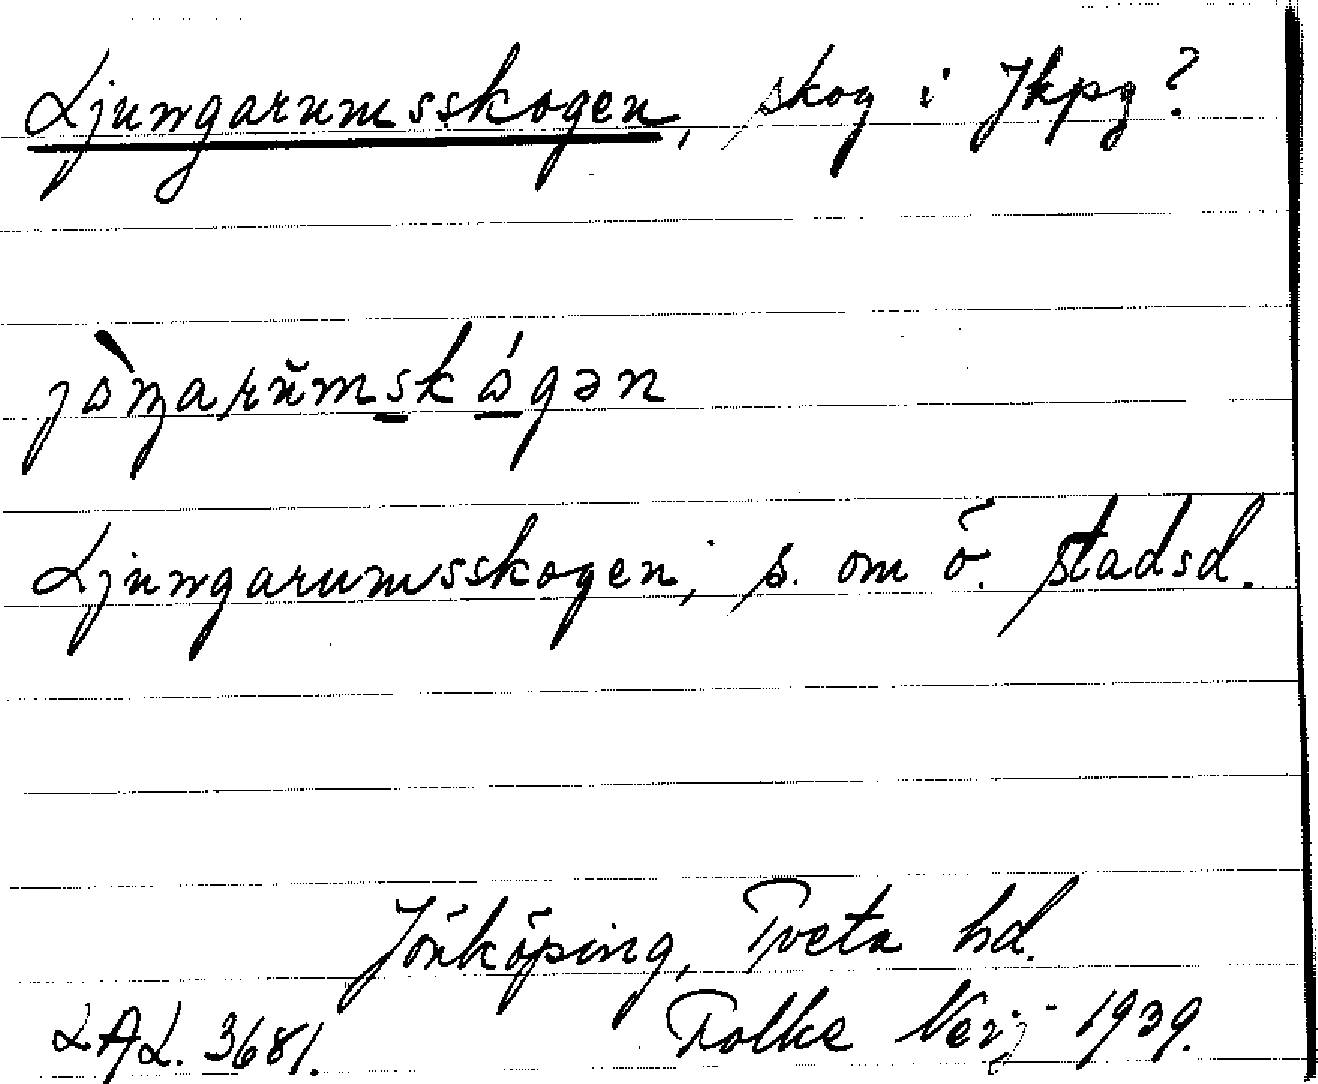 Ljungarumsskogen, skog i Jkpg?
jòŋarŭmskógən
Ljungarumsskogen, s. om ö. stadsd.
Jönköping, Tveta hd.
LAL. 3681. Folke 1939.